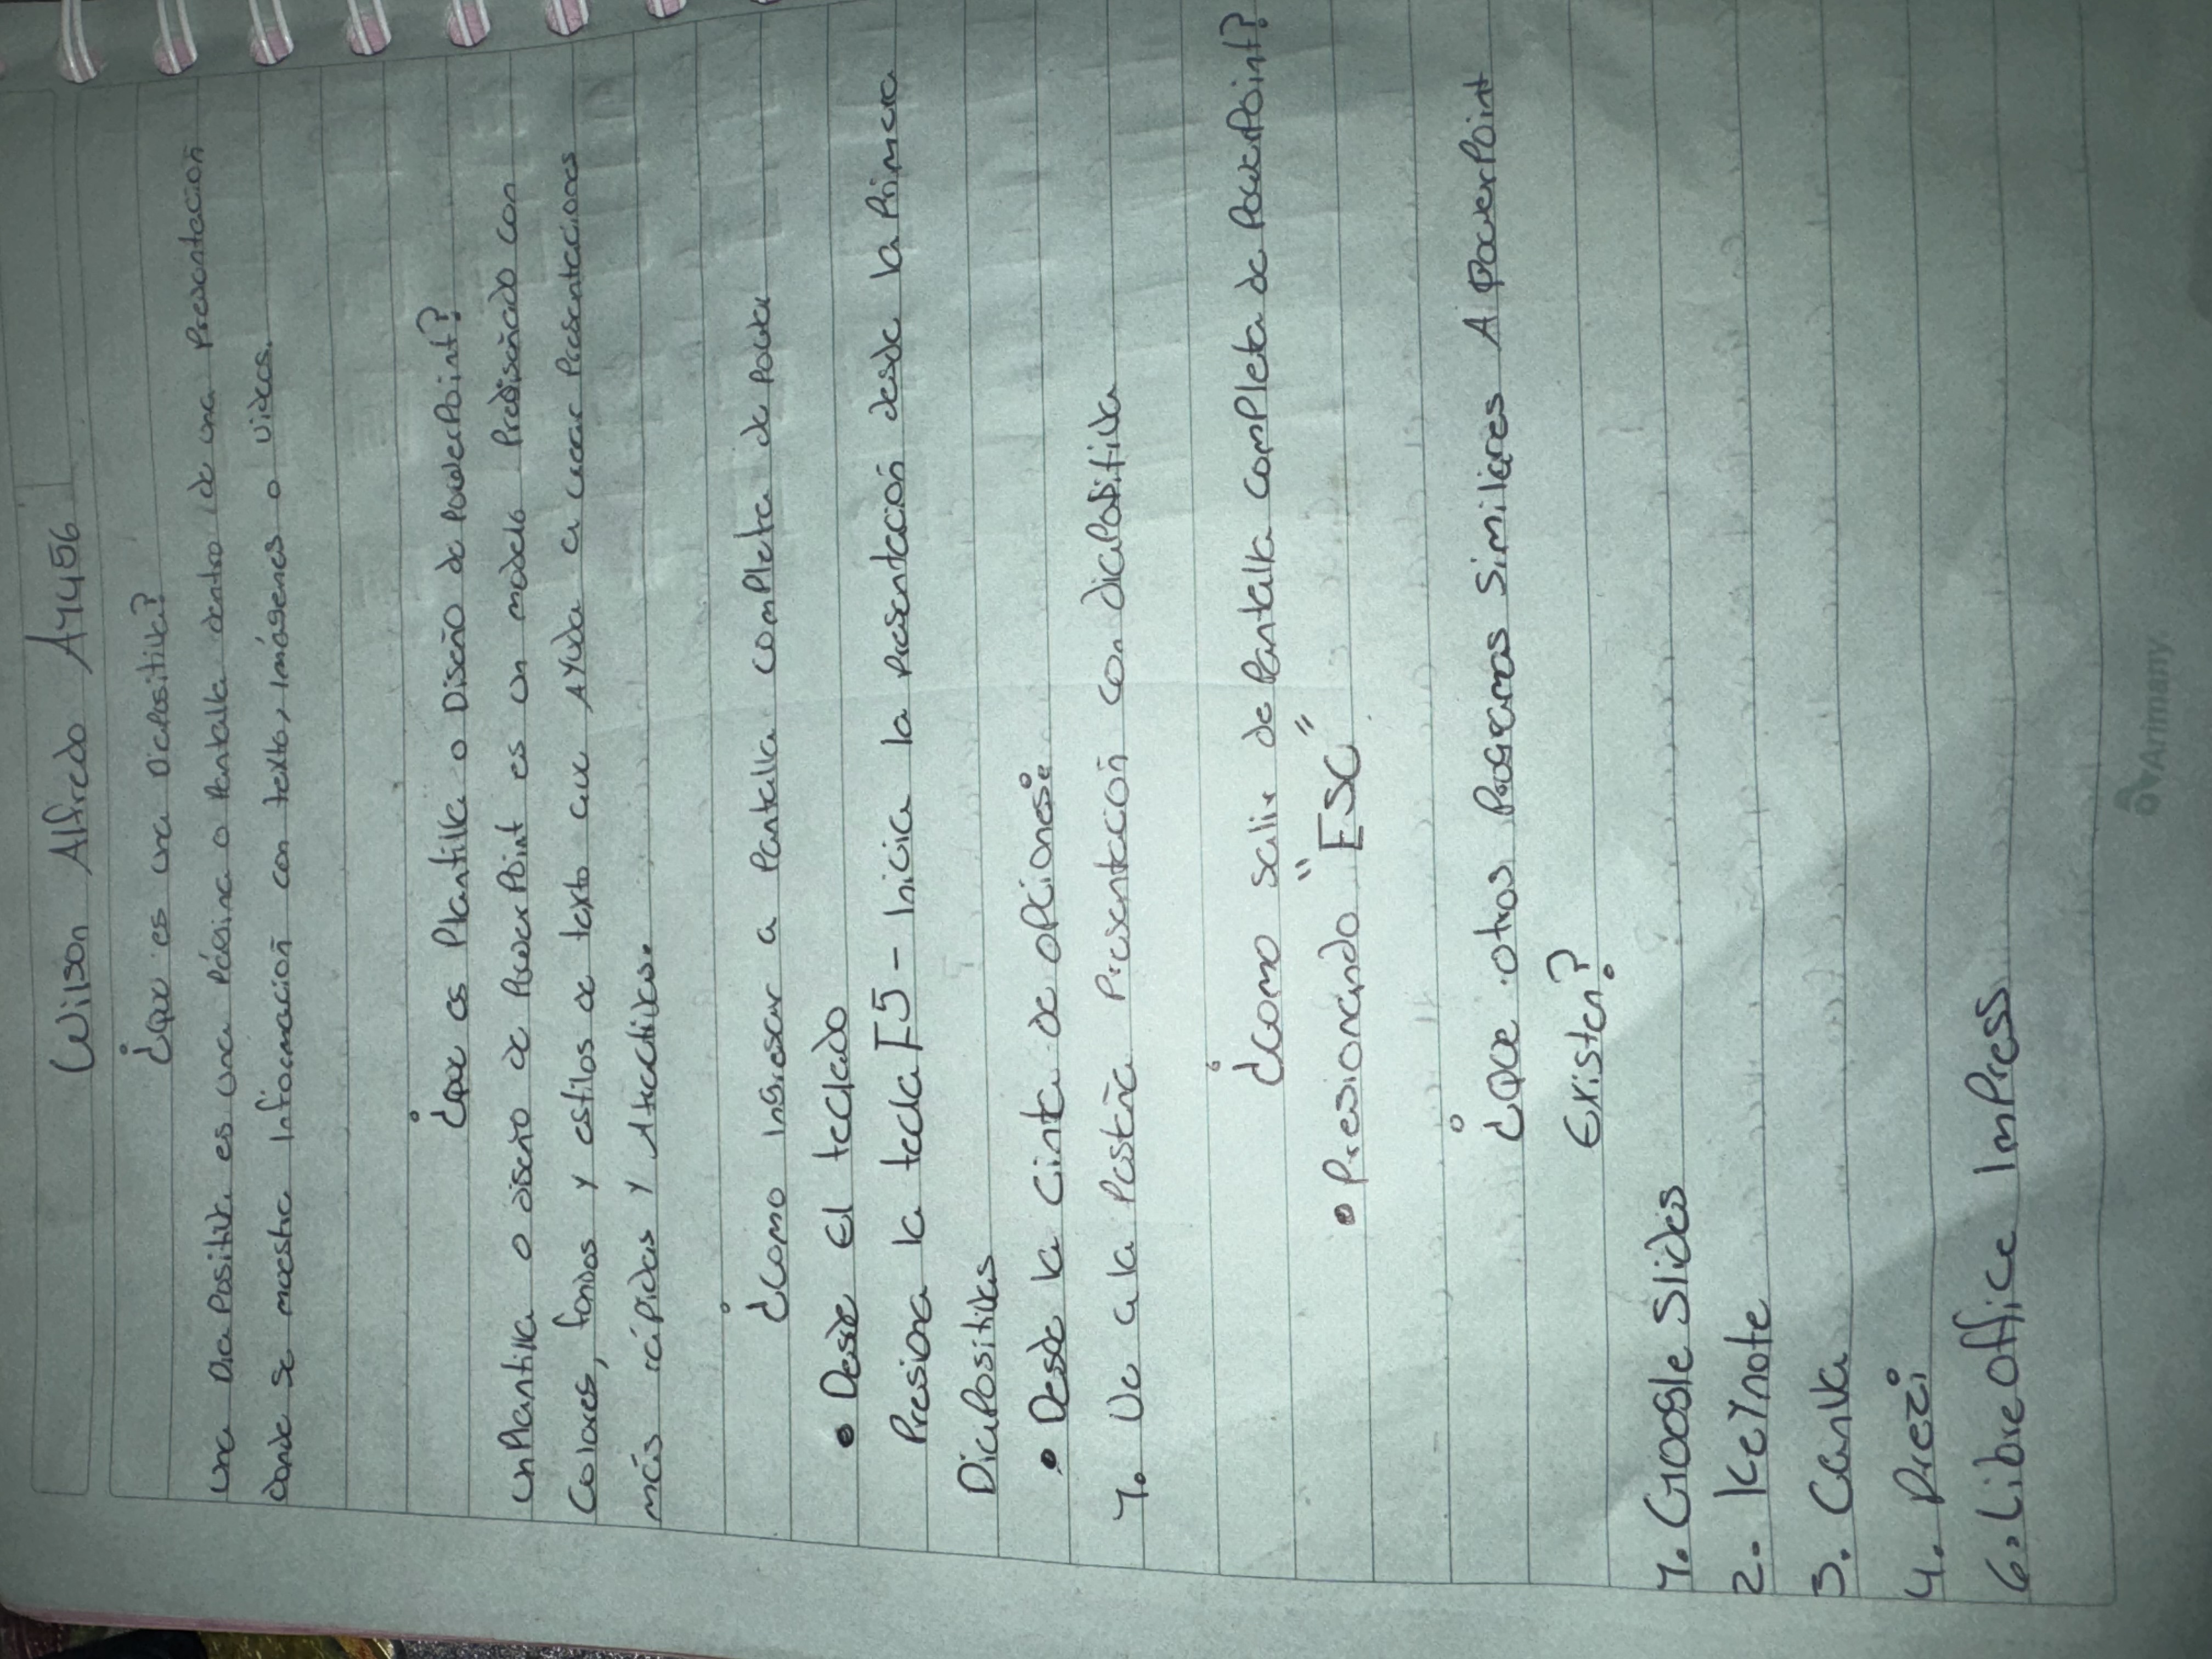 Wilson Alfredo A4456
¿que es una Diapositiva?
una Diapositiva es una Página o Pantalla dentro de una Presentación
donde se muestra Información con texto, Imágenes o videos.
¿que es Plantilla o Diseño de PowerPoint?
un Plantilla o diseño de PowerPoint es un modelo Prediseñado con
Colores, fondos y estilos de texto que Ayuda a crear Presentaciones
más rápidas y Atractivas.
¿como Ingresar a Pantalla completa de Power
• Desde El teclado
Presiona la tecla F5 - Inicia la Presentación desde la Primera
Diapositivas
• Desde la Cinta de opciones:
1. Ve a la Pestaña Presentación con diapositiva
¿como salir de Pantalla completa de PowerPoint?
• Presionando "ESC"
¿que otros Programas Similares A PowerPoint
Existen?
1. Google Slides
2. Keynote
3. Canva
4. Prezi
6. LibreOffice Impress
Arimany